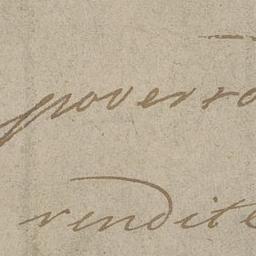 poverro
rendite